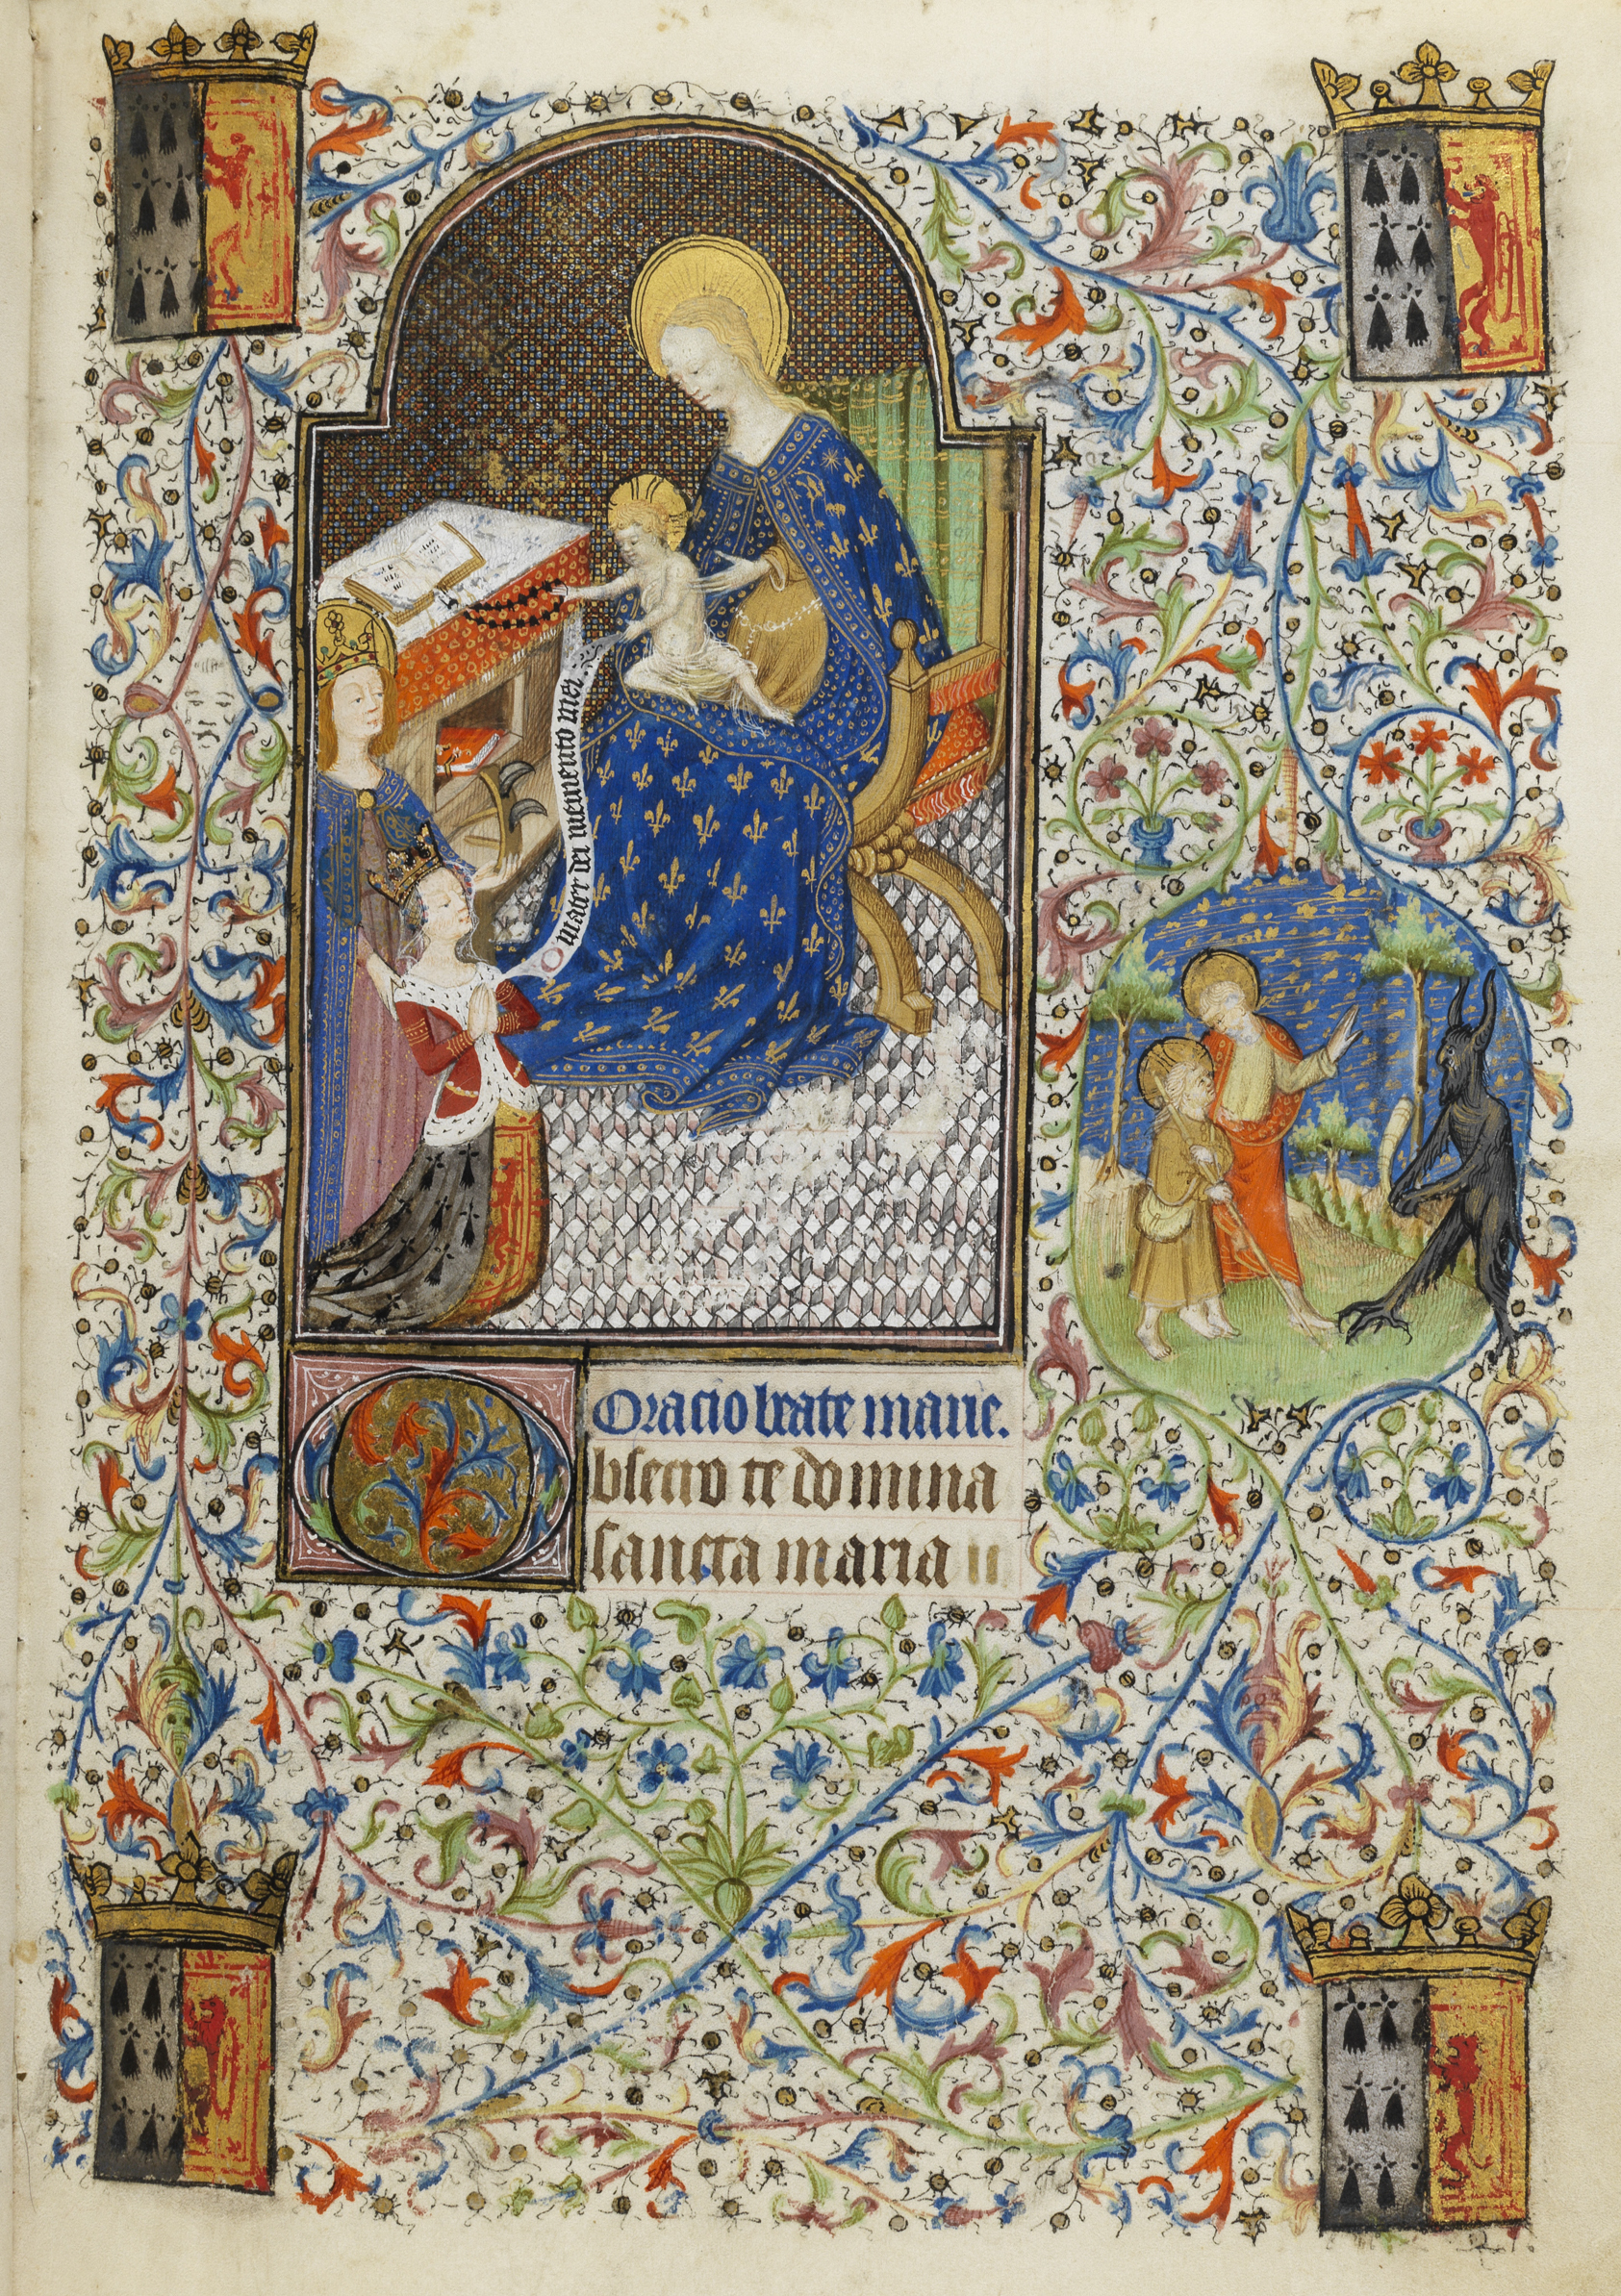 mater dei memento mei
Oracio beate marie.
Obsecro te domina
sancta maria